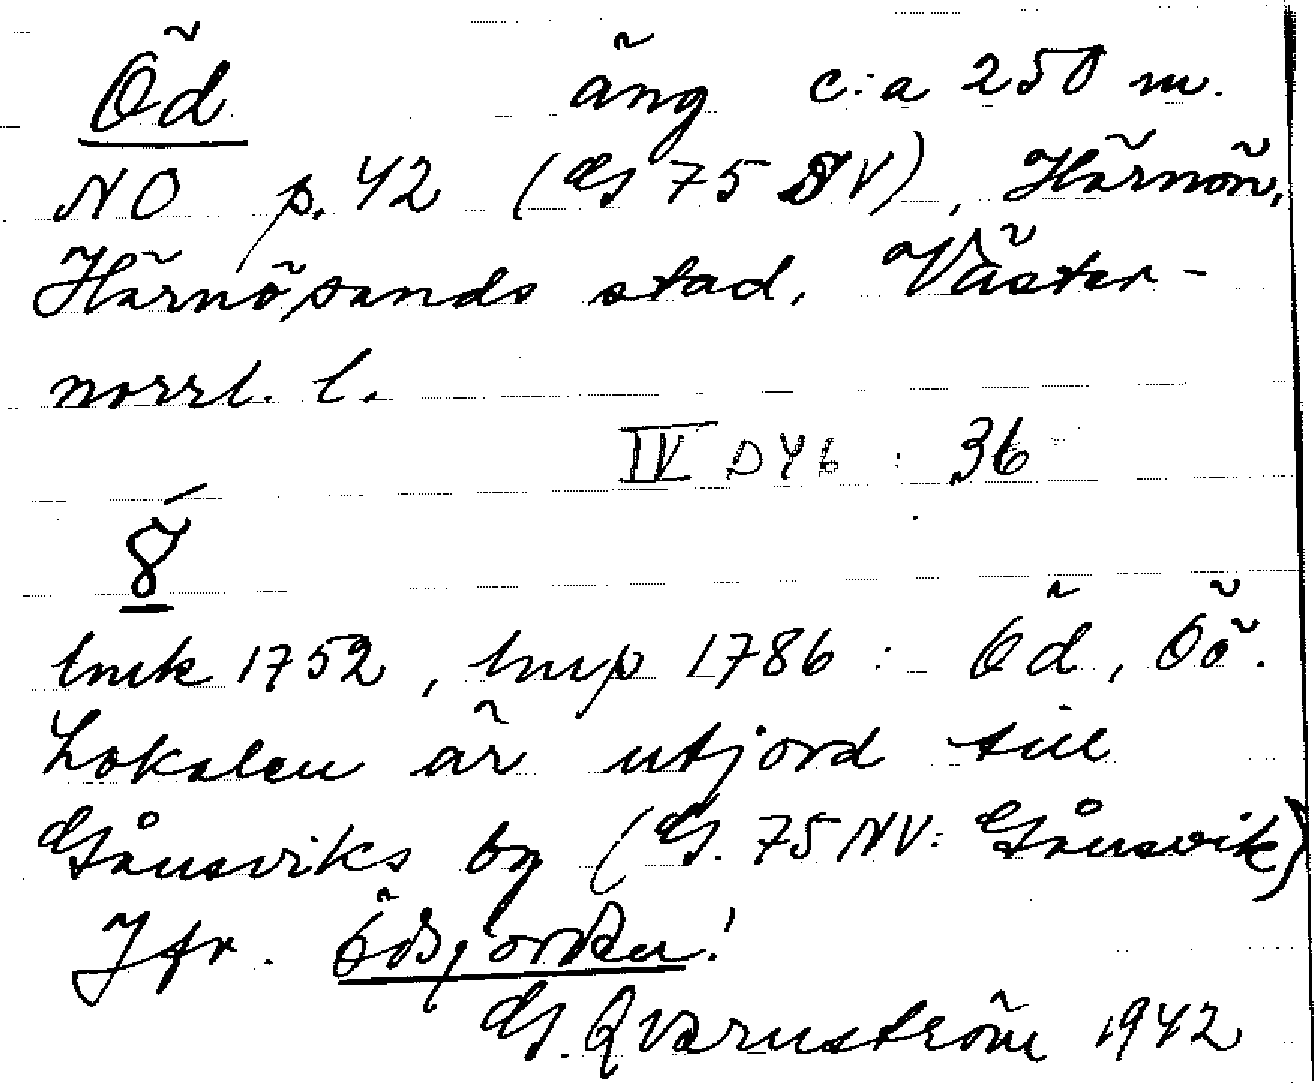 Öd äng c:a 250 m.
NO p. 42 (G 75 NV), Härnön,
Härnösands stad, Väster-
norrl. l.
IV D46 : 36
8́
lmk 1752, lmp 1786: Öd, Öö.
Lokalen är utjord till
Gånsviks by (G. 75 NV: Gånsvik)
Jfr. Ödsjorden!
G. Qvarnström 1942